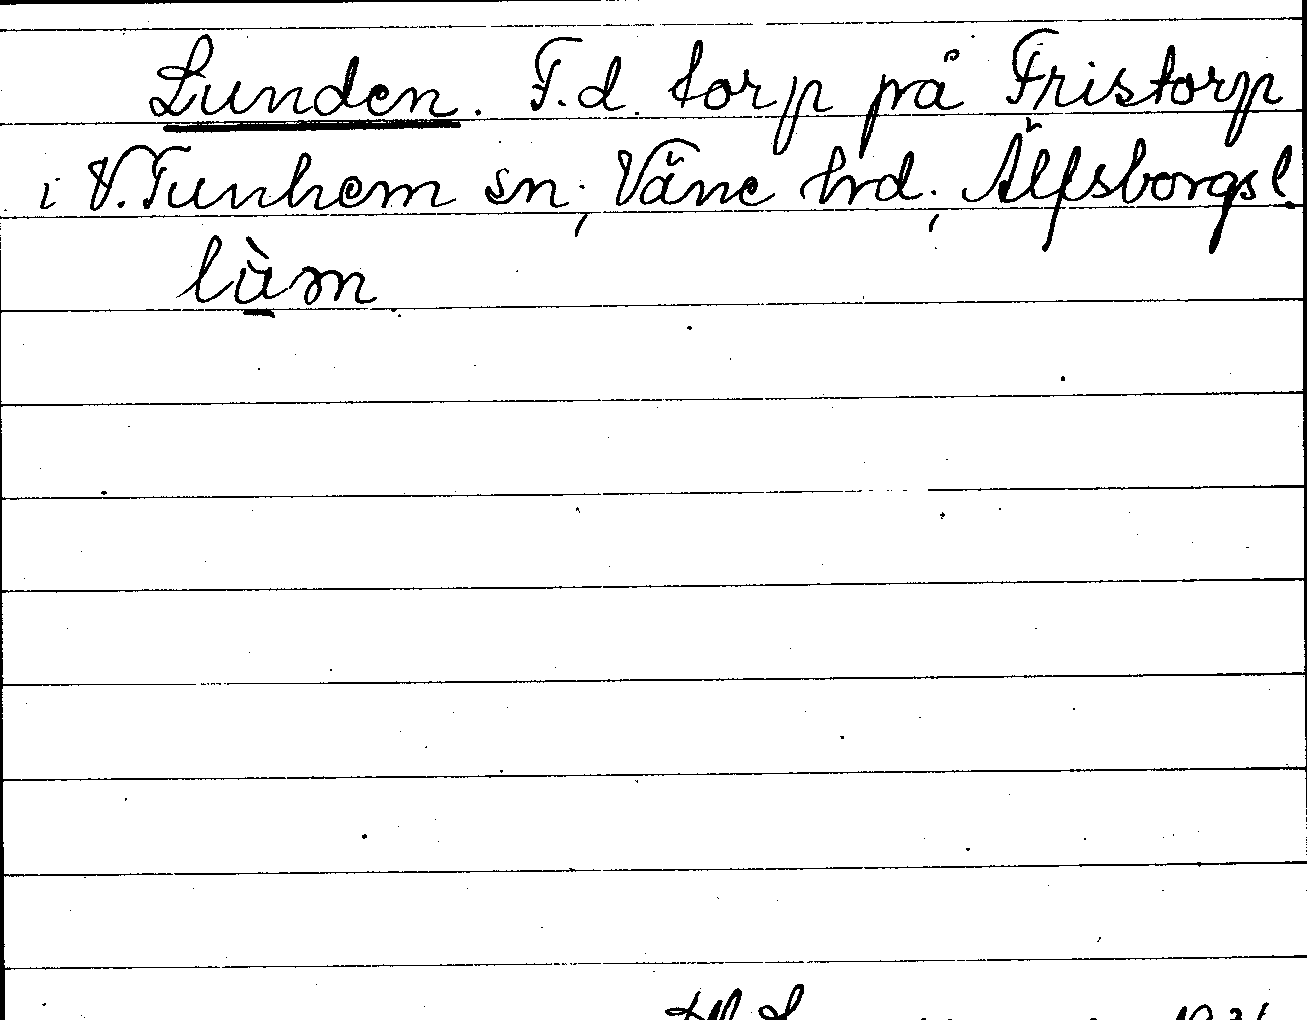 Lunden. F.d. torp på Fristorp
i V. Tunhem sn; Väne hd; Älfsborgs l.